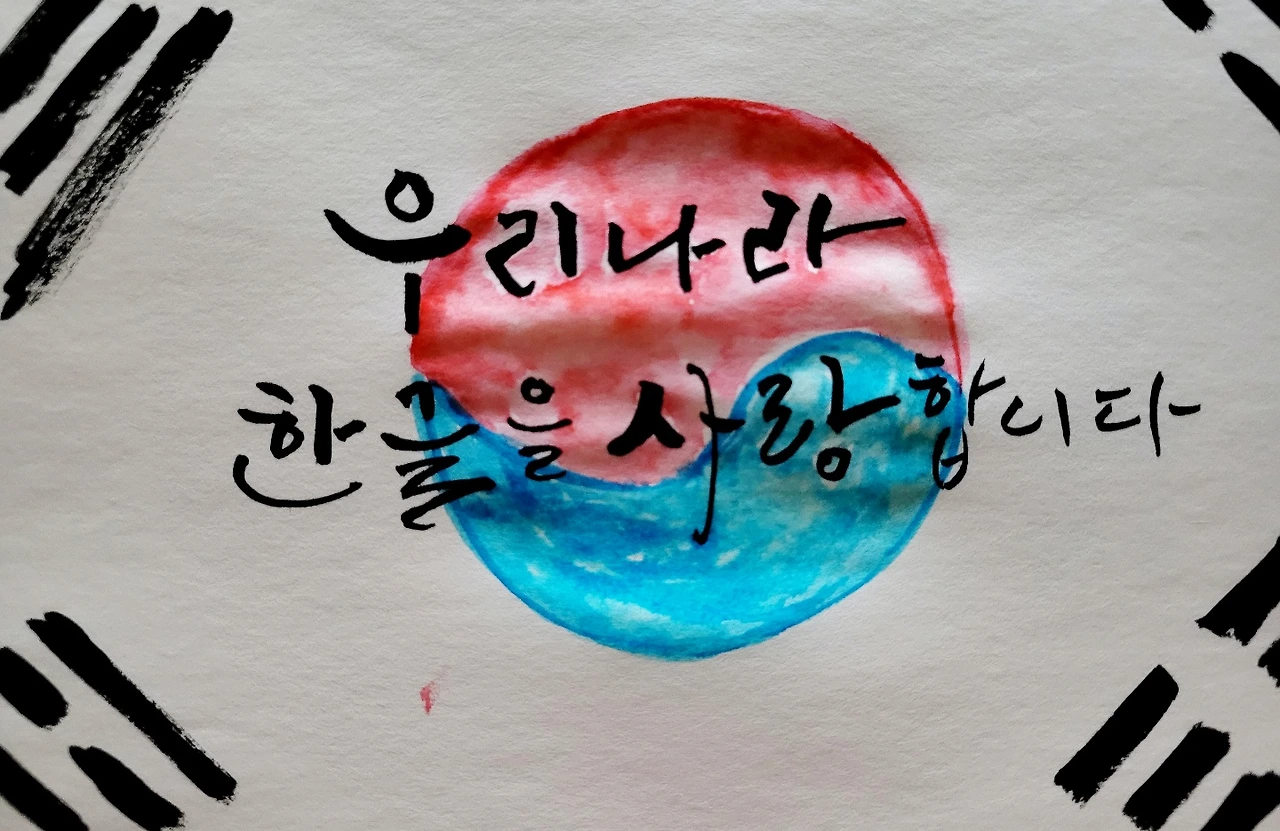 우리나라
한글을 사랑합니다